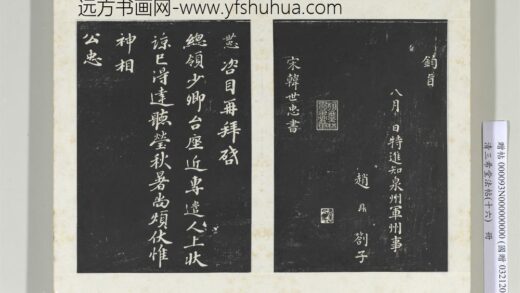 远方书画网-www.yfshuhua.com
八月 日特進知泉州軍州事
趙鼎劄子
宋韓世忠書
咨目再拜啓
總領少卿台座近專遣人上狀
諒已得達聽瑩秋暑尚煩伏惟
神相
公忠
贈帖 000093N000000000 (國贈 032120
清三希堂法帖(十六) 冊